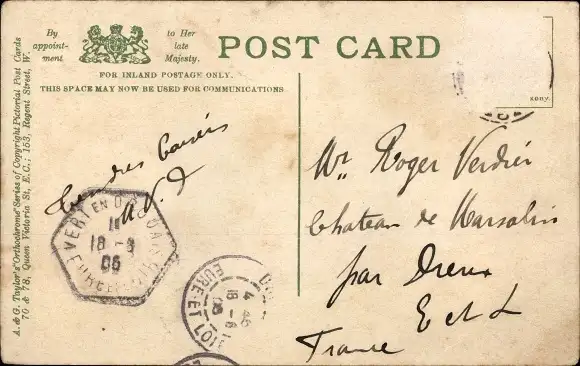 A. & G. Taylor's "Orthochrome" Series of Copyright Pictorial Post Cards
70 & 78, Queen Victoria St, E.C.; 153, Regent Street, W.
By appoint-ment
to Her late Majesty.
POST CARD
FOR INLAND POSTAGE ONLY.
THIS SPACE MAY NOW BE USED FOR COMMUNICATIONS
Tendres baisers
Mr Roger Verdier
Chateau de Marsalin
par Dreux
E et L
France
VERT EN
18 -8
06
EURE ET LOIR
4 45
18 -8
06